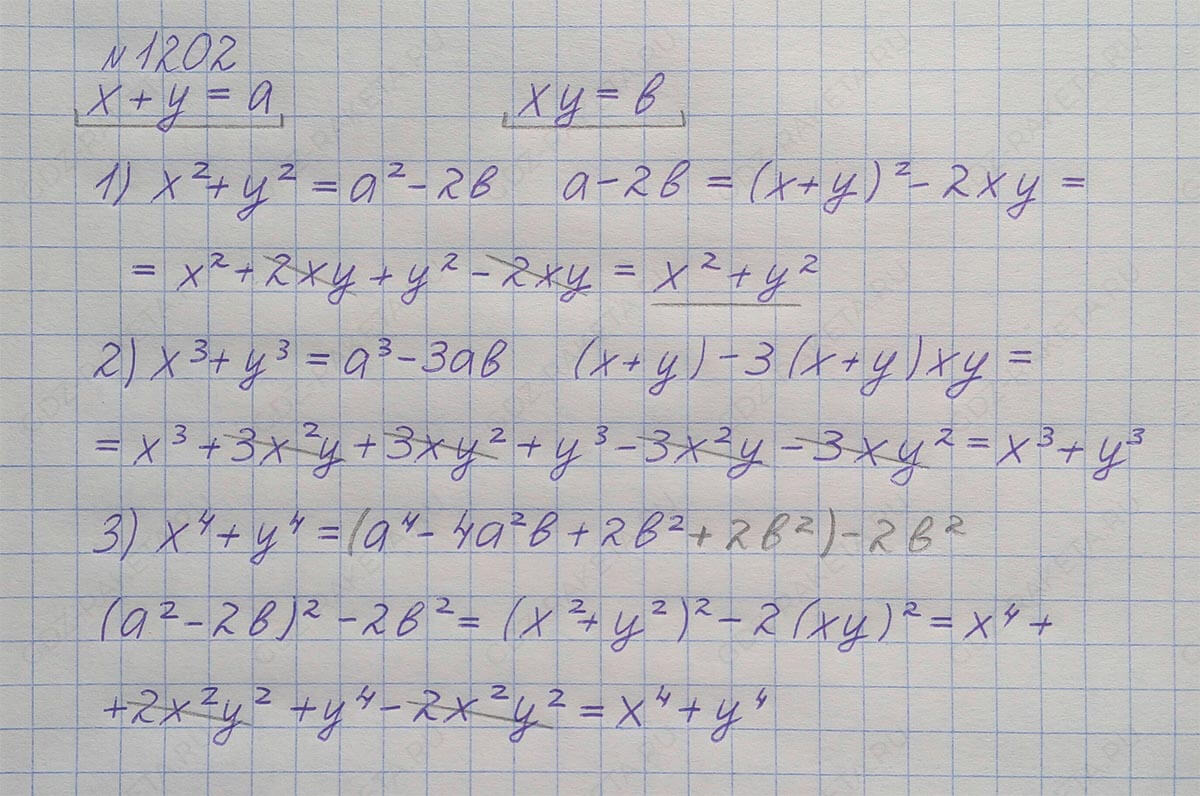 №1202
x + y = a xy = в
1) x² + y² = a² - 2в a - 2в = (x+y)² - 2xy =
= x² + 2xy + y² - 2xy = x² + y²
2) x³ + y³ = a³ - 3aв (x+y) - 3(x+y)xy =
= x³ + 3x²y + 3xy² + y³ - 3x²y - 3xy² = x³ + y³
3) x⁴ + y⁴ = (a⁴ - 4a²в + 2в² + 2в²) - 2в²
(a² - 2в)² - 2в² = (x² + y²)² - 2(xy)² = x⁴ +
+ 2x²y² + y⁴ - 2x²y² = x⁴ + y⁴